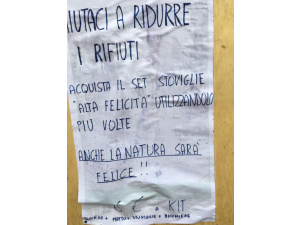 AIUTACI A RIDURRE
I RIFIUTI
ACQUISTA IL SET STOVIGLIE
"ALTA FELICITÀ" UTILIZZANDOLO
PIÙ VOLTE
ANCHE LA NATURA SARÀ
FELICE!!
KIT
+ PIATTO +